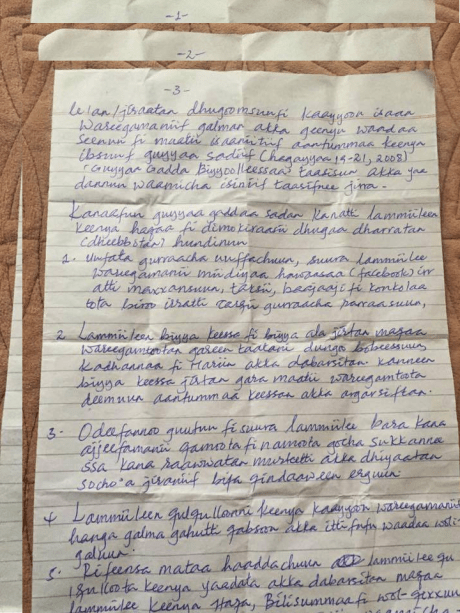 -1-
-2-
-3-
lelan/jiraatan dhugoomsuufi kaayyoon isaan
Wareegamaniif galman akka geenyu waadaa
Seenuu fi maatii isaaniitiif aantummaa keenya
ibsuuf guyyaa sadiif (Hagayya 19-21, 2008)
"Guyyaa Gadda Biyyoolleessaa" taasisuu akka yaa
dannuu waamicha isiniif taasifnee jirra.
Kanaafuu guyyaa gaddaa sadan kanatti lammiileen
keenya hagaa fi dimokiraasii dhugaa dharratan
(dheebotan) hundinuu
1. Uffata gurraacha uffachuun, suura lammiilee
wareegamanii miidiyaa hawaasaa (facebook) irr
atti maxxansuun, taksii, baajaaji fi konkolaa
tota biroo irratti calqii gurraacha
2. Lammiileen biyya keessa fi biyya ala jirtan maqaa
wareegamtootan gareen taa'anii dungoo bobeessuun
Kadhannaa fi Hariin akka dabarsitan. Kanneen
biyya keessa jirtan gara maatii wareegamtoota
deemuun aantummaa keessan akka argarsiftan.
3. Odeeffannoo guutuu fi suura lammiilee bara kana
ajjeefamanii qamoota fi namoota gocha sukkanna
ssa kana raawwatan mirkaneetti akka dhiyaatan
socho'a jiraniif bifa qindaaween erguun.
4 Lammiileen qulqullonni keenya kaayyoon wareegamaniif
hanga galma gahutti qabsoo akka itti fufnu waadaa wal-
galuun.
5. Rifeensa mataa haaddachuun lammiilee qu
lqulloota keenya yaadata akka dabarsitan maqaa
lammiilee keenya Haqa, Bilisummaa fi